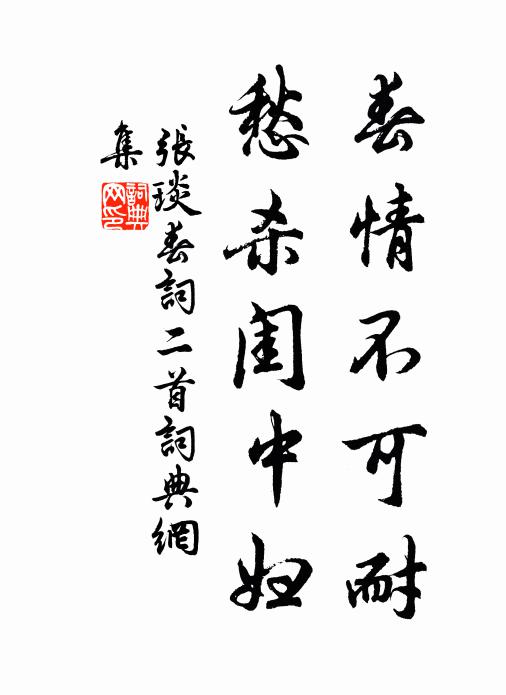 春情不可耐
愁杀闺中妇
張琰春詞二首詞典網
集
詞典
网印